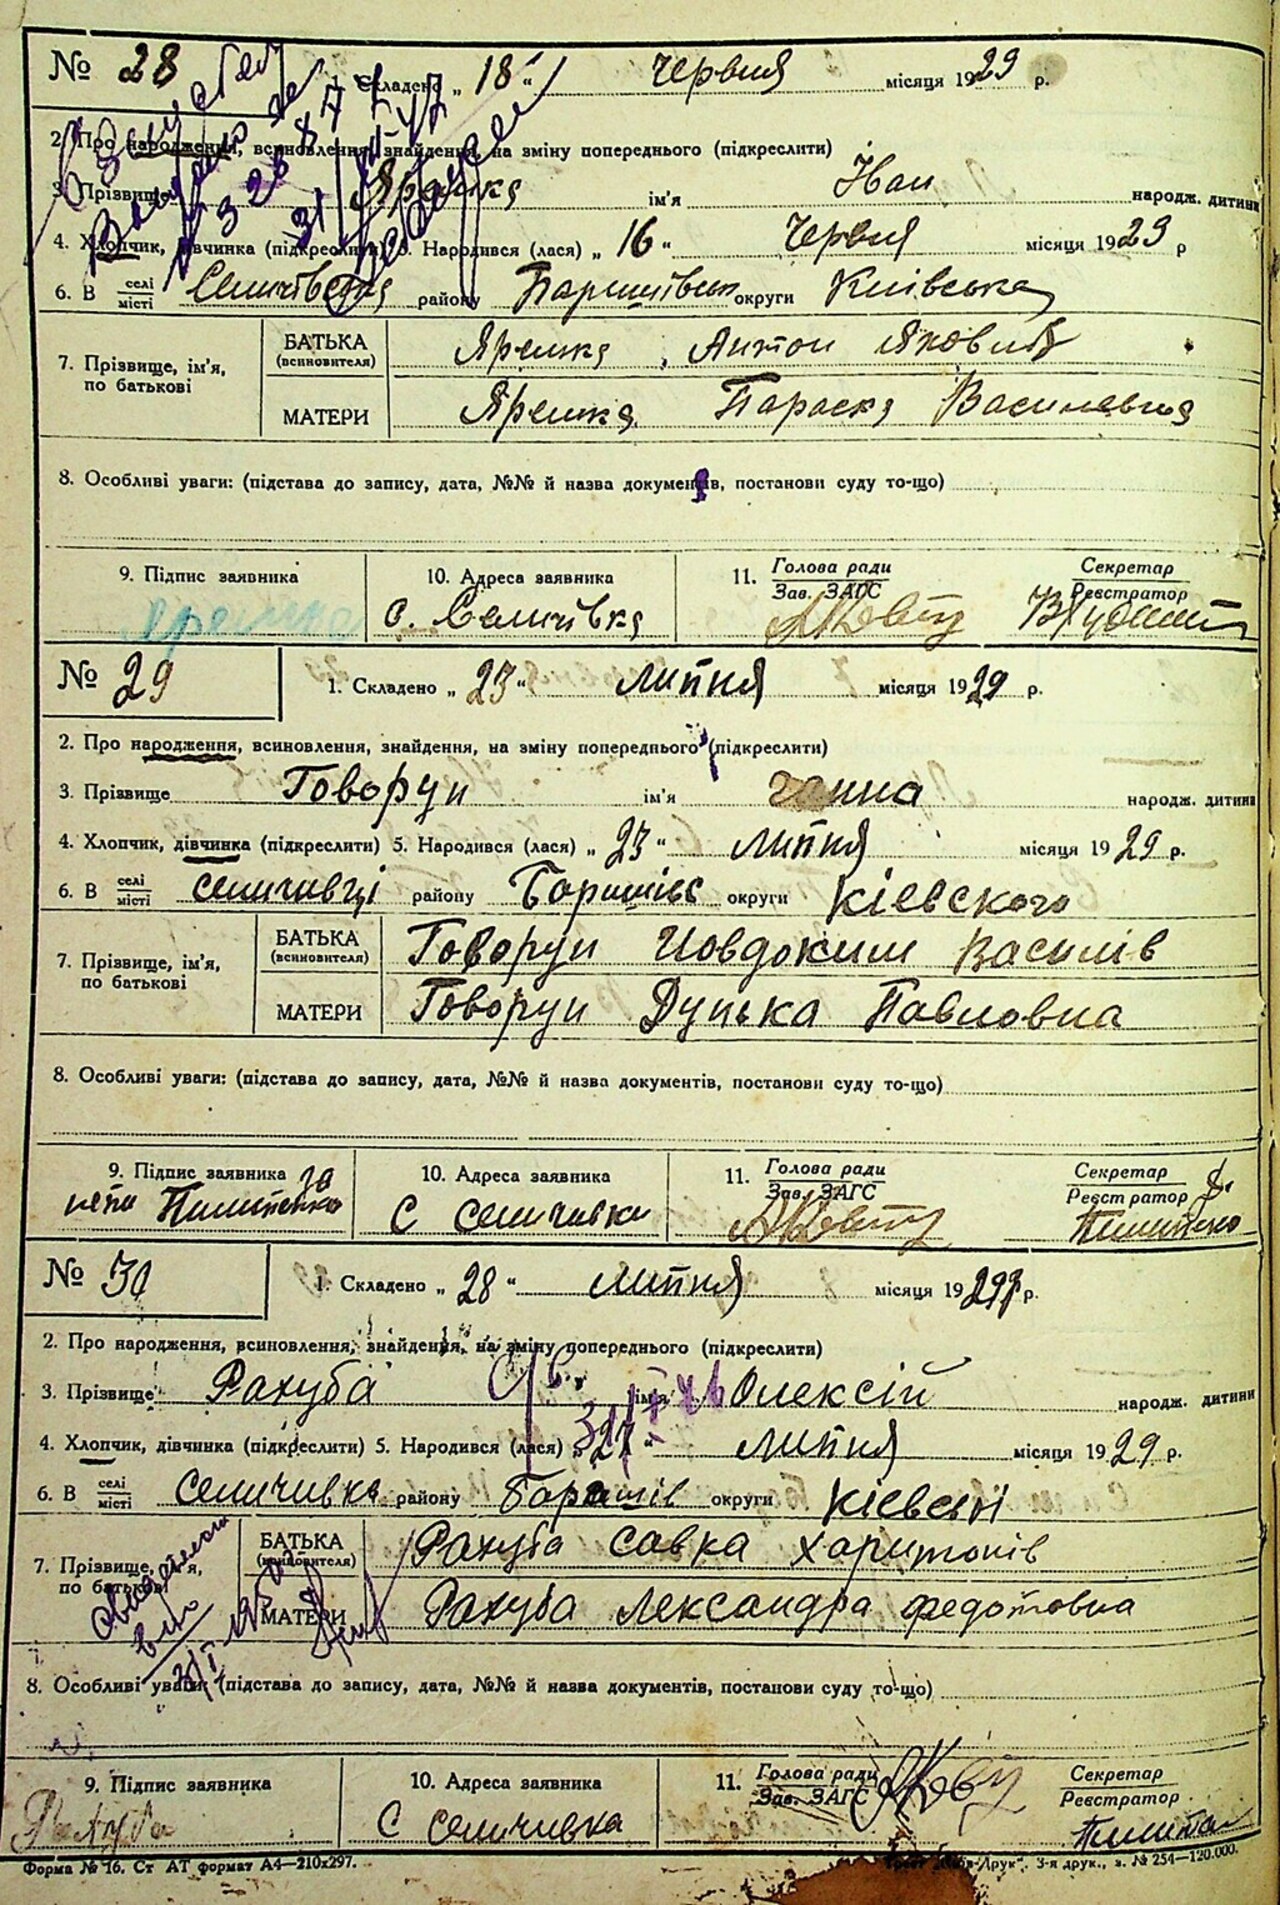 № 28
1. Складено „ 18 “ червня місяця 1929 р.
2. Про народження, всиновлення, знайдення, на зміну попереднього (підкреслити)
3. Прізвище Яремка ім'я Іван народж. дитини
4. Хлопчик, дівчинка (підкреслити) 5. Народився (лася) „ 16 “ червня місяця 1929 р
6. В селі/місті району округи Київська
7. Прізвище, ім'я, по батькові
БАТЬКА (всиновителя) Яремка, Антон Якович
МАТЕРИ Яремка Параска Василевна
8. Особливі уваги: (підстава до запису, дата, №№ й назва документів, постанови суду то-що)
9. Підпис заявника 10. Адреса заявника 11. Голова ради Секретар
Зав. ЗАГС Реєстратор
Яремка с. Селичівка
№ 29
1. Складено „ 23 “ липня місяця 1929 р.
2. Про народження, всиновлення, знайдення, на зміну попереднього (підкреслити)
3. Прізвище Говорун ім'я ганна народж. дитини
4. Хлопчик, дівчинка (підкреслити) 5. Народився (лася) „ 23 “ липня місяця 1929 р.
6. В селі/місті селичивці району Баришівс округи Кіевского
7. Прізвище, ім'я, по батькові
БАТЬКА (всиновителя) Говорун Йовдоким Василів
МАТЕРИ Говорун Дунька Павловна
8. Особливі уваги: (підстава до запису, дата, №№ й назва документів, постанови суду то-що)
9. Підпис заявника за 10. Адреса заявника 11. Голова ради Секретар
Зав. ЗАГС Реєстратор
Пилипенко С селичивки
№ 30
1. Складено „ 28 “ липня місяця 1929 р.
2. Про народження, всиновлення, знайдення, на зміну попереднього (підкреслити)
3. Прізвище Рахуба ім'я Олексій народж. дитини
4. Хлопчик, дівчинка (підкреслити) 5. Народився (лася) „ 27 “ липня місяця 1929 р.
6. В селі/місті Селичивка району Баришів округи
7. Прізвище, ім'я, по батькові
БАТЬКА (всиновителя) Рахуба Савка Харитонів
МАТЕРИ Рахуба Лександра Федотовна
8. Особливі уваги: (підстава до запису, дата, №№ й назва документів, постанови суду то-що)
9. Підпис заявника 10. Адреса заявника 11. Голова ради Секретар
Зав. ЗАГС Реєстратор
Рахуба С селичивка
Форма № 16. Ст АТ формат А4—210х297. 3-я друк., з. № 254—120.000.